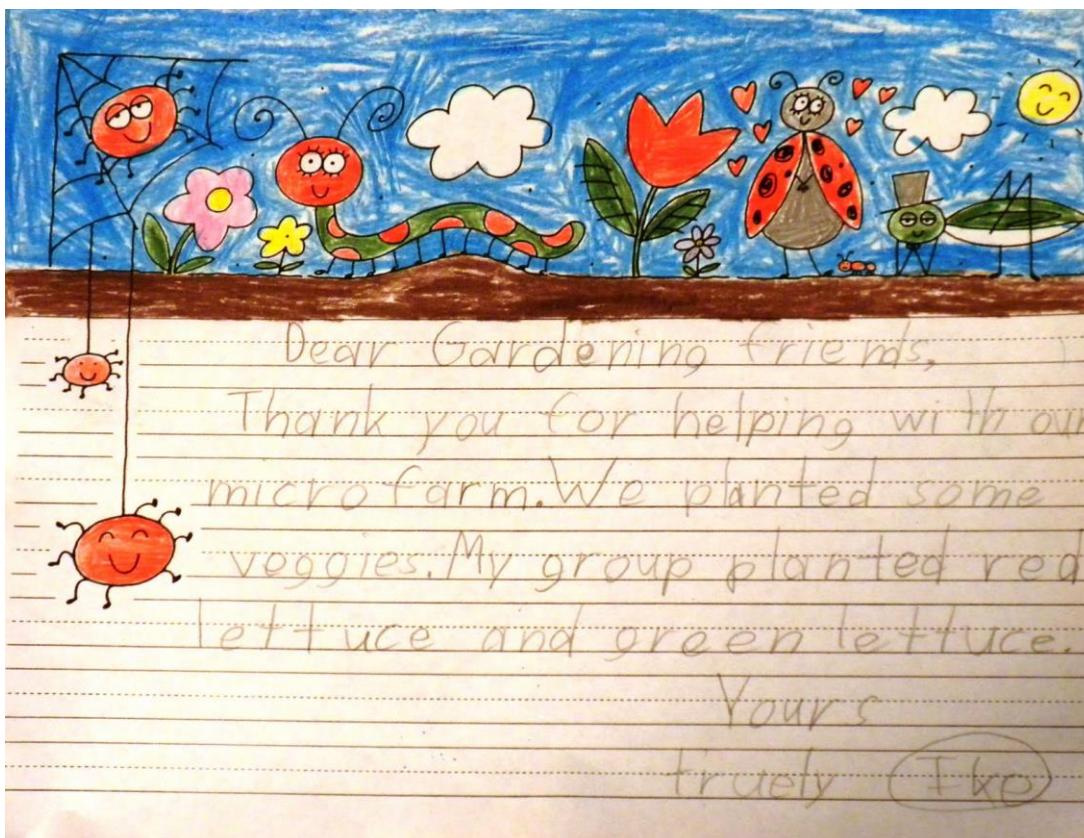 Dear Gardening friends,
Thank you for helping with our
micro farm. We planted some
veggies. My group planted red
lettuce and green lettuce.
Yours
truely Ike